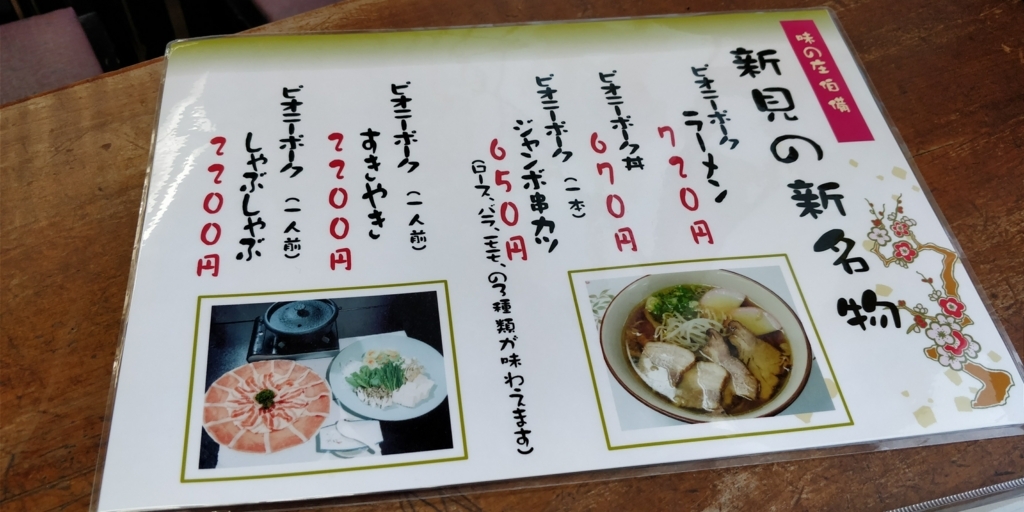 味の在伯備
新見の新名物
ピオニーポーク
ラーメン
720円
ピオニーポーク丼
670円
ピオニーポーク(一本)
ジャンボ串カツ
650円
(ロース、バラ、モモ、の3種類が味わえます)
ピオニーポーク(一人前)
すきやき
2200円
ピオニーポーク(一人前)
しゃぶしゃぶ
2200円